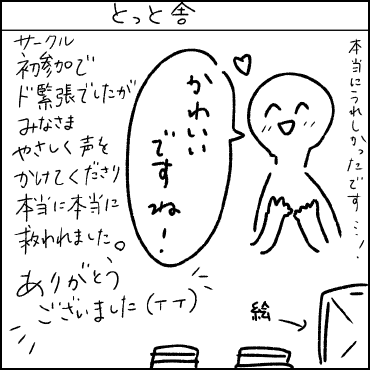 とっと舎
本当にうれしかったです…!
かわいい
ですね!
サークル
初参加で
ド緊張でしたが
みなさま
やさしく声を
かけてくださり
本当に本当に
救われました。
ありがとう
ございました(TT)
絵